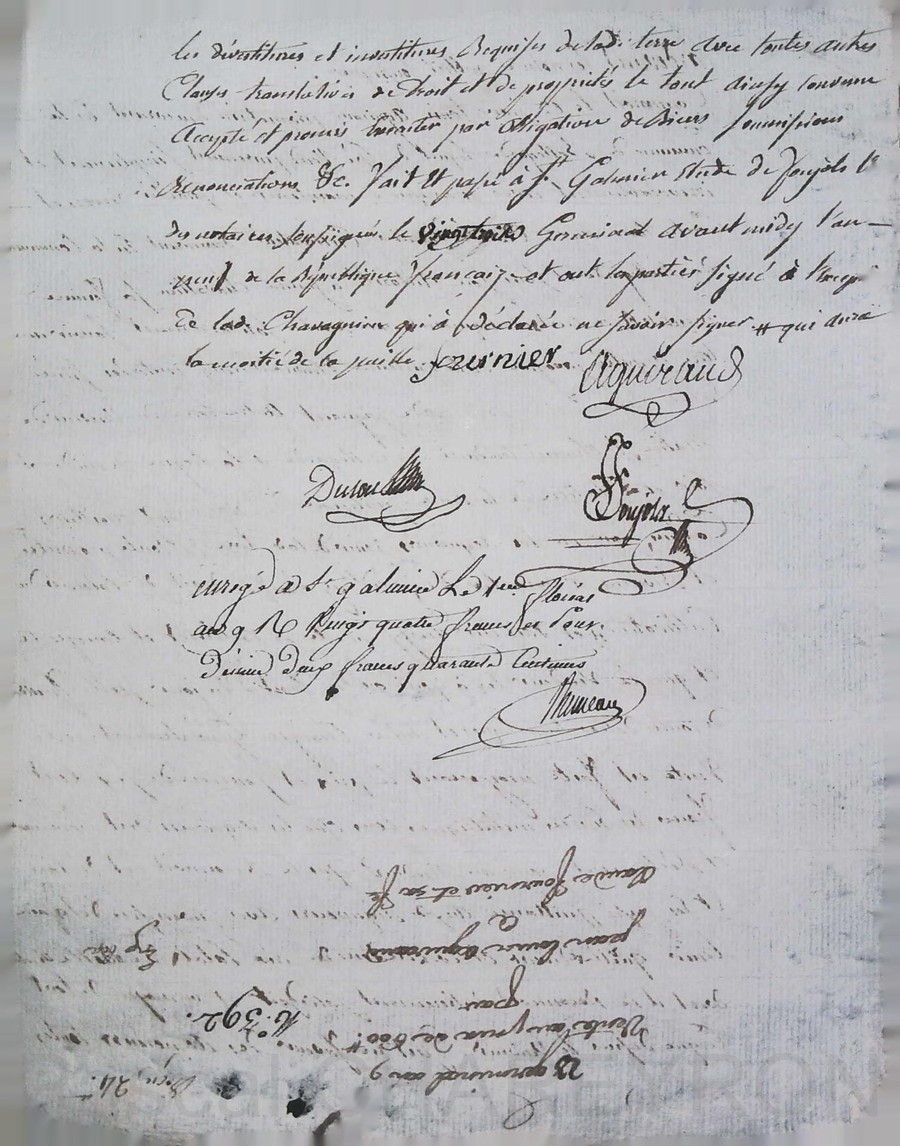 les dévetitures et invetitures Requises de lad. terre avec toutes autres
Clauses translatives de droit et de propriétés le tout ainsy convenu
Accepté et promis par obligation de Biens soumissions
Renonciations &c. fait et passé à St Galmier Etude de foujols l'
des notaires soussignés le vingt trois Germinal avant midy l'an
neuf de la République française et ont les parties signé à l'excep
de lad. Chavagnieu qui à déclaré ne savoir signer # qui aura
la moitié de la feuille fournier
Aguiraud
foujols
enregé a St galmier Le 1er floréal
an 9 R vingt quatre francs et Pour
Décime deux francs quarante Centimes
23 germinal an 9
Vente au prix de 600
par
jean louis aguiraud
a
Claude fournier et sa fe
N.º 392.